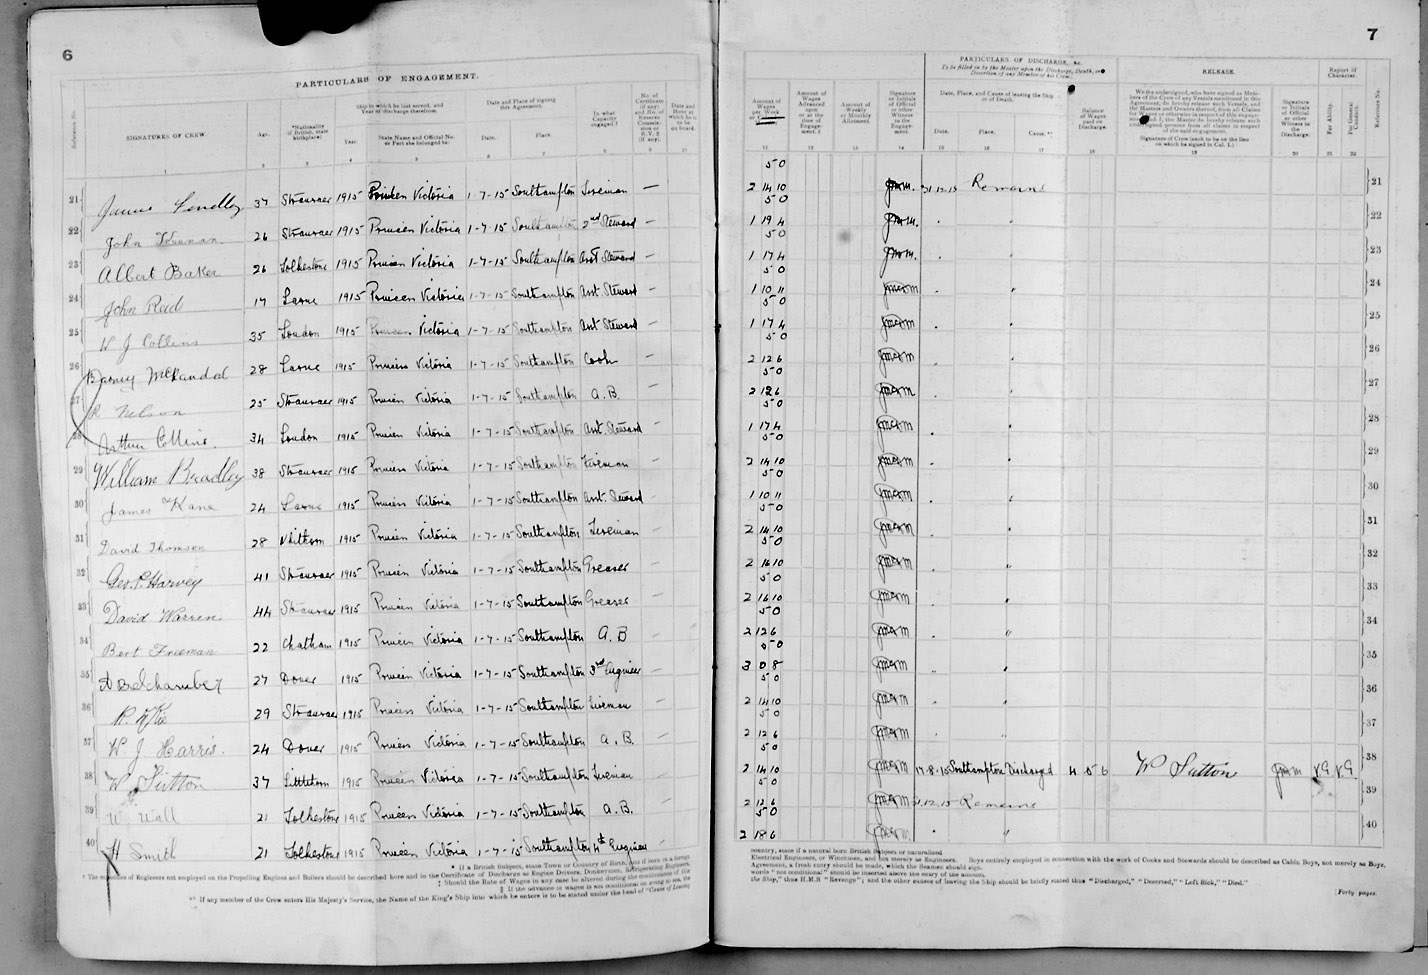 6
PARTICULARS OF ENGAGEMENT.
Reference No. SIGNATURES OF CREW. Age. *Nationality (if British, state birthplace) Ship in which he last served, and Year of discharge therefrom. Year. State Name and Official No. or Port she belonged to. Date and Place of signing this Agreement. Date. Place. In what Capacity engaged.† No. of Certificate (if any) and No. of Reserve Commission or R.V.2 (if any). Date and Hour at which he is to be on board.
1 2 3 4 5 6 7 8 9 10
21 James 37 Stranraer 1915 Princess Victoria 1-7-15 Southampton Fireman —
22 John 26 Stranraer 1915 Princess Victoria 1-7-15 Southampton 2nd Steward —
23 Albert Baker 26 Folkestone 1915 Princess Victoria 1-7-15 Southampton Asst Steward —
24 John Reid 17 Larne 1915 Princess Victoria 1-7-15 Southampton Asst Steward —
25 W J Collens 35 London 1915 Princess Victoria 1-7-15 Southampton Asst Steward —
26 Barney McRandal 28 Larne 1915 Princess Victoria 1-7-15 Southampton Cook —
27 R Nelson 25 Stranraer 1915 Princess Victoria 1-7-15 Southampton A.B. —
28 Arthur Collins. 34 London 1915 Princess Victoria 1-7-15 Southampton Asst. Steward —
29 William Bradley 38 Stranraer 1915 Princess Victoria 1-7-15 Southampton Fireman —
30 James Kane 24 Larne 1915 Princess Victoria 1-7-15 Southampton Asst. Steward —
31 David Thomson 28 Whithorn 1915 Princess Victoria 1-7-15 Southampton Fireman —
32 Geo. P. Harvey 41 Stranraer 1915 Princess Victoria 1-7-15 Southampton Greaser —
33 David Warren 44 Stranraer 1915 Princess Victoria 1-7-15 Southampton Greaser —
34 Bert Freeman 22 Chatham 1915 Princess Victoria 1-7-15 Southampton A.B —
35 27 Dover 1915 Princess Victoria 1-7-15 Southampton 3rd Engineer —
36 29 Stranraer 1915 Princess Victoria 1-7-15 Southampton Fireman —
37 W J Harris. 24 Dover 1915 Princess Victoria 1-7-15 Southampton A.B. —
38 W Sutton 37 1915 Princess Victoria 1-7-15 Southampton Fireman —
39 W Wall 21 Folkestone 1915 Princess Victoria 1-7-15 Southampton A.B. —
40 H Smith 21 Folkestone 1915 Princess Victoria 1-7-15 Southampton 4th Engineer —
* If a British Subject, state Town or Country of Birth, and if born in a foreign
† The of Engineers not employed on the Propelling Engines and Boilers should be described here and in the Certificate of Discharge as Engine Drivers, Donkeymen, Refrigerating Engineers,
‡ Should the Rate of Wages in any case be altered during the continuance of this
|| If the advance of wages is not conditional on going to sea, the
** If any member of the Crew enters His Majesty's Service, the Name of the King's Ship into which he enters is to be stated under the head of "Cause of Leaving
7
PARTICULARS OF DISCHARGE, &c.
To be filled in by the Master upon the Discharge, Death, or Desertion of any Member of his Crew.
RELEASE.
Report of Character.
Amount of Wages per Week or Amount of Wages Advanced upon or at the time of Engagement. Amount of Weekly or Monthly Allotment. Signature or Initials of Official or other Witness to the Engagement. Date, Place, and Cause of leaving the Ship or of Death. Date. Place. Cause.** Balance of Wages paid on Discharge. Signature of Crew (each to be on the line on which he signed in Col. 1.) Signature or Initials of Official or other Witness to the Discharge. For Ability. For General Conduct. Reference No.
11 12 13 14 15 16 17 18 19 20 21 22
5 0
2 14 10 31.12.15 Remains 21
5 0
1 19 4 22
5 0
1 17 4 23
5 0
1 10 11 24
5 0
1 17 4 25
5 0
2 12 6 26
5 0
2 12 6 27
5 0
1 17 4 28
5 0
2 14 10 29
5 0
1 10 11 30
5 0
2 14 10 31
5 0
2 16 10 32
5 0
2 16 10 33
5 0
2 12 6 34
5 0
3 0 8 35
5 0
2 14 10 36
5 0
2 12 6 37
5 0
2 14 10 17-8-15 Southampton Discharged 4 5 6 W Sutton V.G V.G. 38
5 0
2 12 6 31.12.15 Remains 39
5 0
2 18 6 40
country, state if a natural born British Subject or naturalized
Electrical Engineers, or Winchmen, and not merely as Engineers. Boys entirely employed in connection with the work of Cooks and Stewards should be described as Cabin Boys, not merely as Boys,
Agreement, a fresh entry should be made, which the Seamen should sign.
words "not conditional" should be inserted above the entry of the amount.
the Ship," thus H.M.S "Revenge"; and the other causes of leaving the Ship should be briefly stated thus "Discharged," "Deserted," "Left Sick," "Died."
[Forty pages.